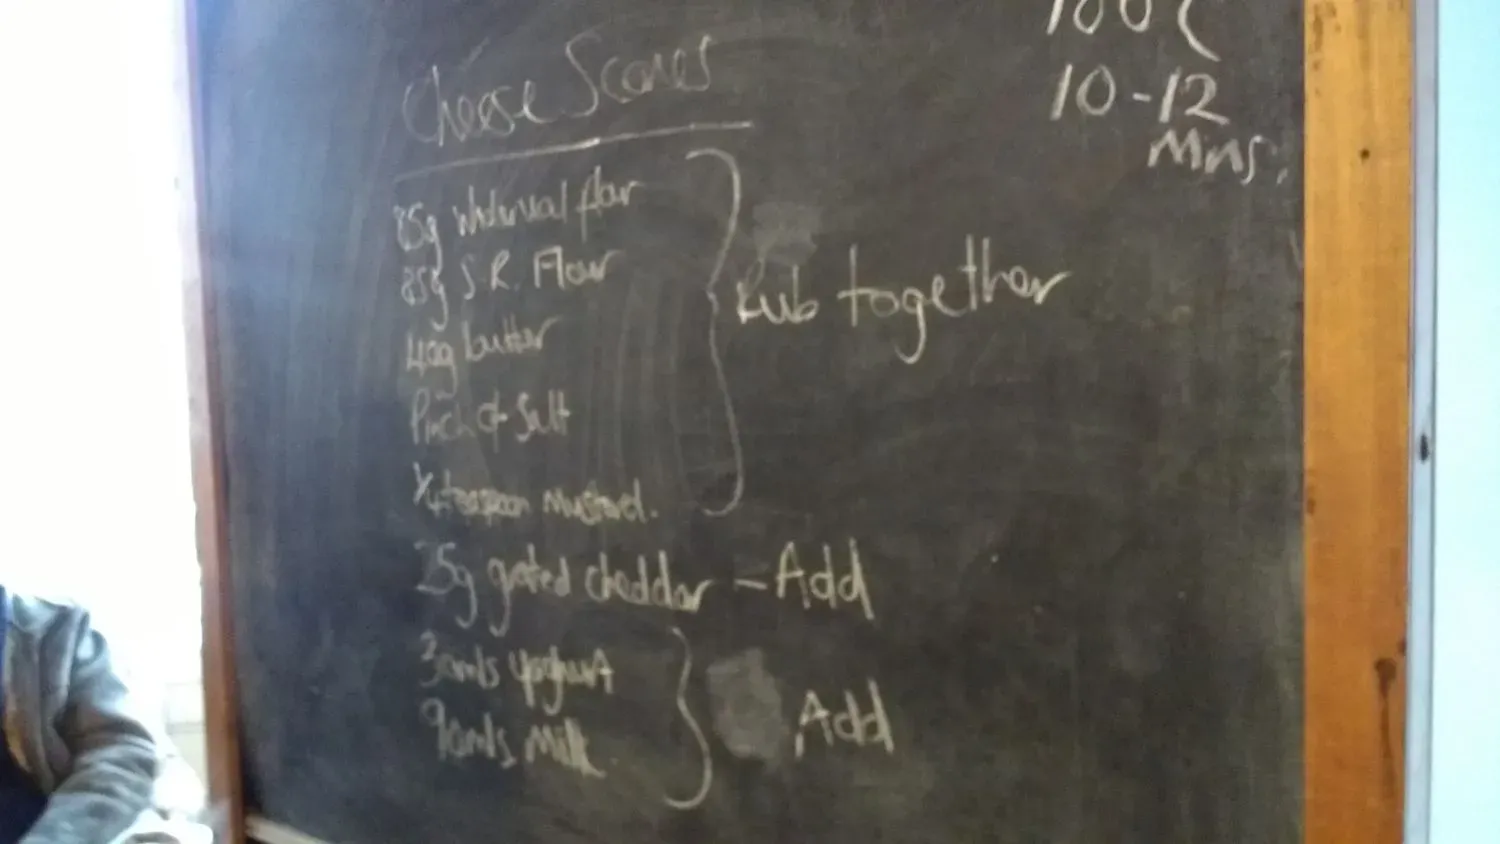 Cheese Scones
85g wholemeal flour
85g S.R. Flour
40g butter
Pinch of Salt
1/4 teaspoon Mustard.
25g grated cheddar – Add
30mls Yoghurt
90mls Milk
Rub together
Add
10-12
Mins.